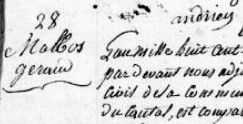 andrieu
28
Malbos
geraud
L'an mille huit cent
par devant nous adj
civil de la commune
du Cantal, est compa